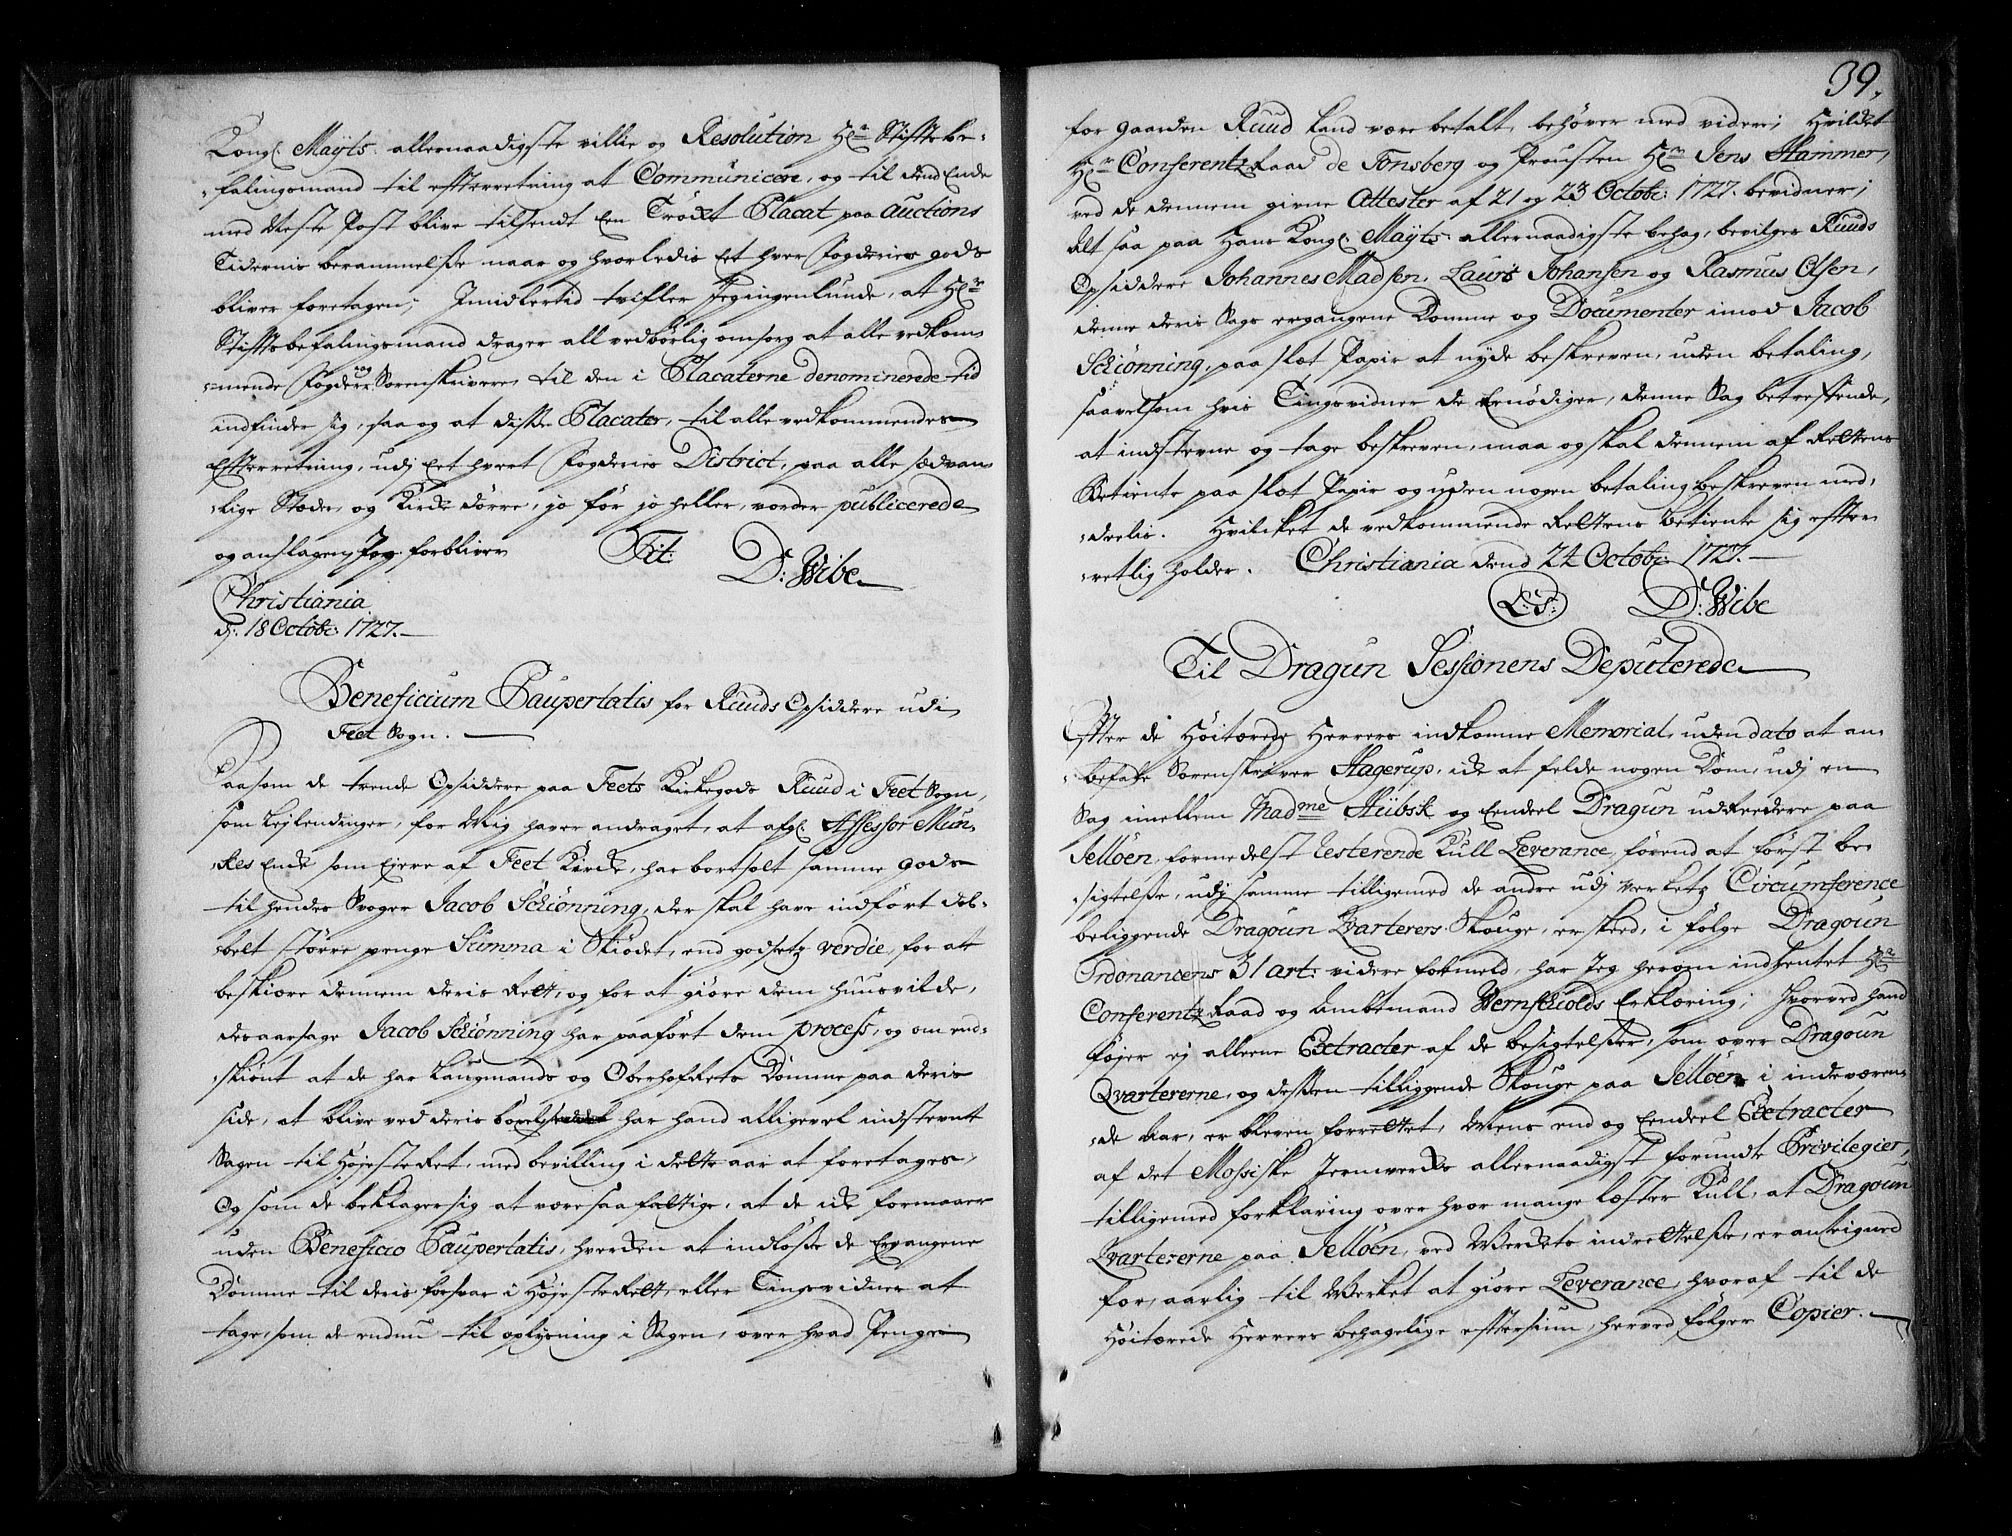 Kongl. Mayts. allernaadigste villie og Resolution Hr. Stiftsbe-
-falingsmand til efterretning at Communicere, og til dend Ende
med Neste Post blive tilsendt Een Tröxt Placat paa Auctions
Tidernis berammelsse naar og hvorledis Eet hver Fogderies gods
bliver foretagen; Imidlertid tvifler Jeg ingenlunde, at Hr.
Stiftsbefalingsmand drager all vedbörlig omsorg at alle vedkom-
-mende Fogder og Sorenskrivere til den i Placaterne denominerede tid
indfinder sig, saa og at disse Placater, til alle vedkommendes
Efterretning, udj Eet hvert Fogderies District, paa alle sædvan-
-lige Stæder og Kirke dörre, jo för jo heller, vorder publicerede
og anslagen, Jeg forbliver Tit: D: Wibe
Christiania
d: 18 Octobr: 1727.
Beneficium Paupertatis for Ruuds Opsiddere udi
Feet Sogn.
Saasom de trende Opsiddere paa Feets Kirkegods Ruud i Feet Sogn,
som Leylendinger, for Mig haver andraget, at afgl. Assessor Mun-
-kes Enke som Ejere af Feet Kirke, har bortsolt samme gods
til hendes Svoger Jacob Schiönning, der skal have indfört dob-
-belt större penge Summa i Skiödet, end godsetz verdie, for att
beskiære dennem deris Rett, og for at giöre dem huusvilde,
desaarsage Jacob Schiönning har paafört dem process, og om end-
-skiönt at de har Laugmands og Oberhofrets Domme paa deris
side, at blive ved deris har hand alligevel indstevnt
Sagen til Höjesteret, med bevilling i dette aar at foretages,
Og som de beklager sig at være saa fattige, at de icke formaaer
uden Beneficio Paupertatis, hverken at indlösse de Ergangene
Domme til deris forsvar i Höjeste Rett, eller Tingsvidner at
tage, som de endnu til oplysning i Sagen, over hvad Penge
39.
for gaarden Ruud kand være betalt, behöver med videre; Hvilcket
Hr. Conferentz Raad de Tonsberg og Prousten Hr. Jens Hammer,
ved de dennem givne Attester af 21 og 23 Octobr: 1727. bevidner;
Alt saa paa Hans Kongl. Mayts. allernaadigste behag, bevilges Ruuds
Opsiddere Johannes Madsen, Laurs Johansen og Rasmus Olsen,
denne deris Sags ergangene Domme og Documenter imod Jacob
Schiönning, paa slet Papir at nyde beskreven, uden betaling,
saavelsom hvis Tingsvidner de Ernödiger, denne Sag betreffende,
at indstevne og tage beskreven, maa og skal dennem af Rettens
Betiente paa slet Papir og uden nogen betaling beskreven med-
-deelis. Hvilcket de vedkommende Rettens Betiente sig efter-
-retlig holder. Christiania dend 24 Octobr: 1727.
L:S: D: Wibe
Til Dragun Sessionens Deputerede
Efter de Höitærede Herrers indkomne Memorial, uden dato at an-
-befale Sorenskriver Hagerup, icke at felde nogen Dom, udj en
Sag imellem Madme Hübsk og Eendeel Dragun udReedere paa
Jellöen, formedelst resterende Kull Leverance, förend at först be-
-sigtelsse, udj samme tilligemed de andre udj verketz Circumference
beliggende Dragoun Qvarterers Skouge, er skeed, i fölge Dragoun
Ordonancens 31 art: videre formeld, har Jeg herom indhentet Hr.
Conferentz Raad og Ambtmand Wernschiolds Erklæring; hvorved hand
föjer ej alleene Extracter af de besigtelsser, som over Dragoun
Qvartererne, og dessen tilliggende Skouge paa Jellöen i indeværen-
-de Aar, er bleven forrettet, Mens end og Eendeel Extracter
af det Mossiske Jernwerks allernaadigst forundte Privilegier,
tilligemed forklaring over hvor mange læster Kull, at Dragoun
Qvartererne paa Jellöen, ved Werkets indrettelsse, er anteigned
for, aarlig til Werket at giöre Leverance, hvoraf til de
Höitærede Herrers behagelige eftersiun, herved fölger Copier.